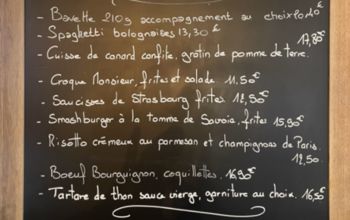 - Bavette 210g accompagnement au choix 20,20€
- Spaghetti bolognaises 13,30€
- Cuisse de canard confite, gratin de pomme de terre. 17,80€
- Croque Monsieur, frites et salade. 11,50€
- Saucisses de Strasbourg frites 12,50€
- Smashburger à la tomme de Savoie, frites 15,90€
- Risotto crémeux au parmesan et champignons de Paris. 12,50
- Boeuf Bourguignon, coquillettes. 16,90€
- Tartare de thon sauce vierge, garniture au choix. 16,50€